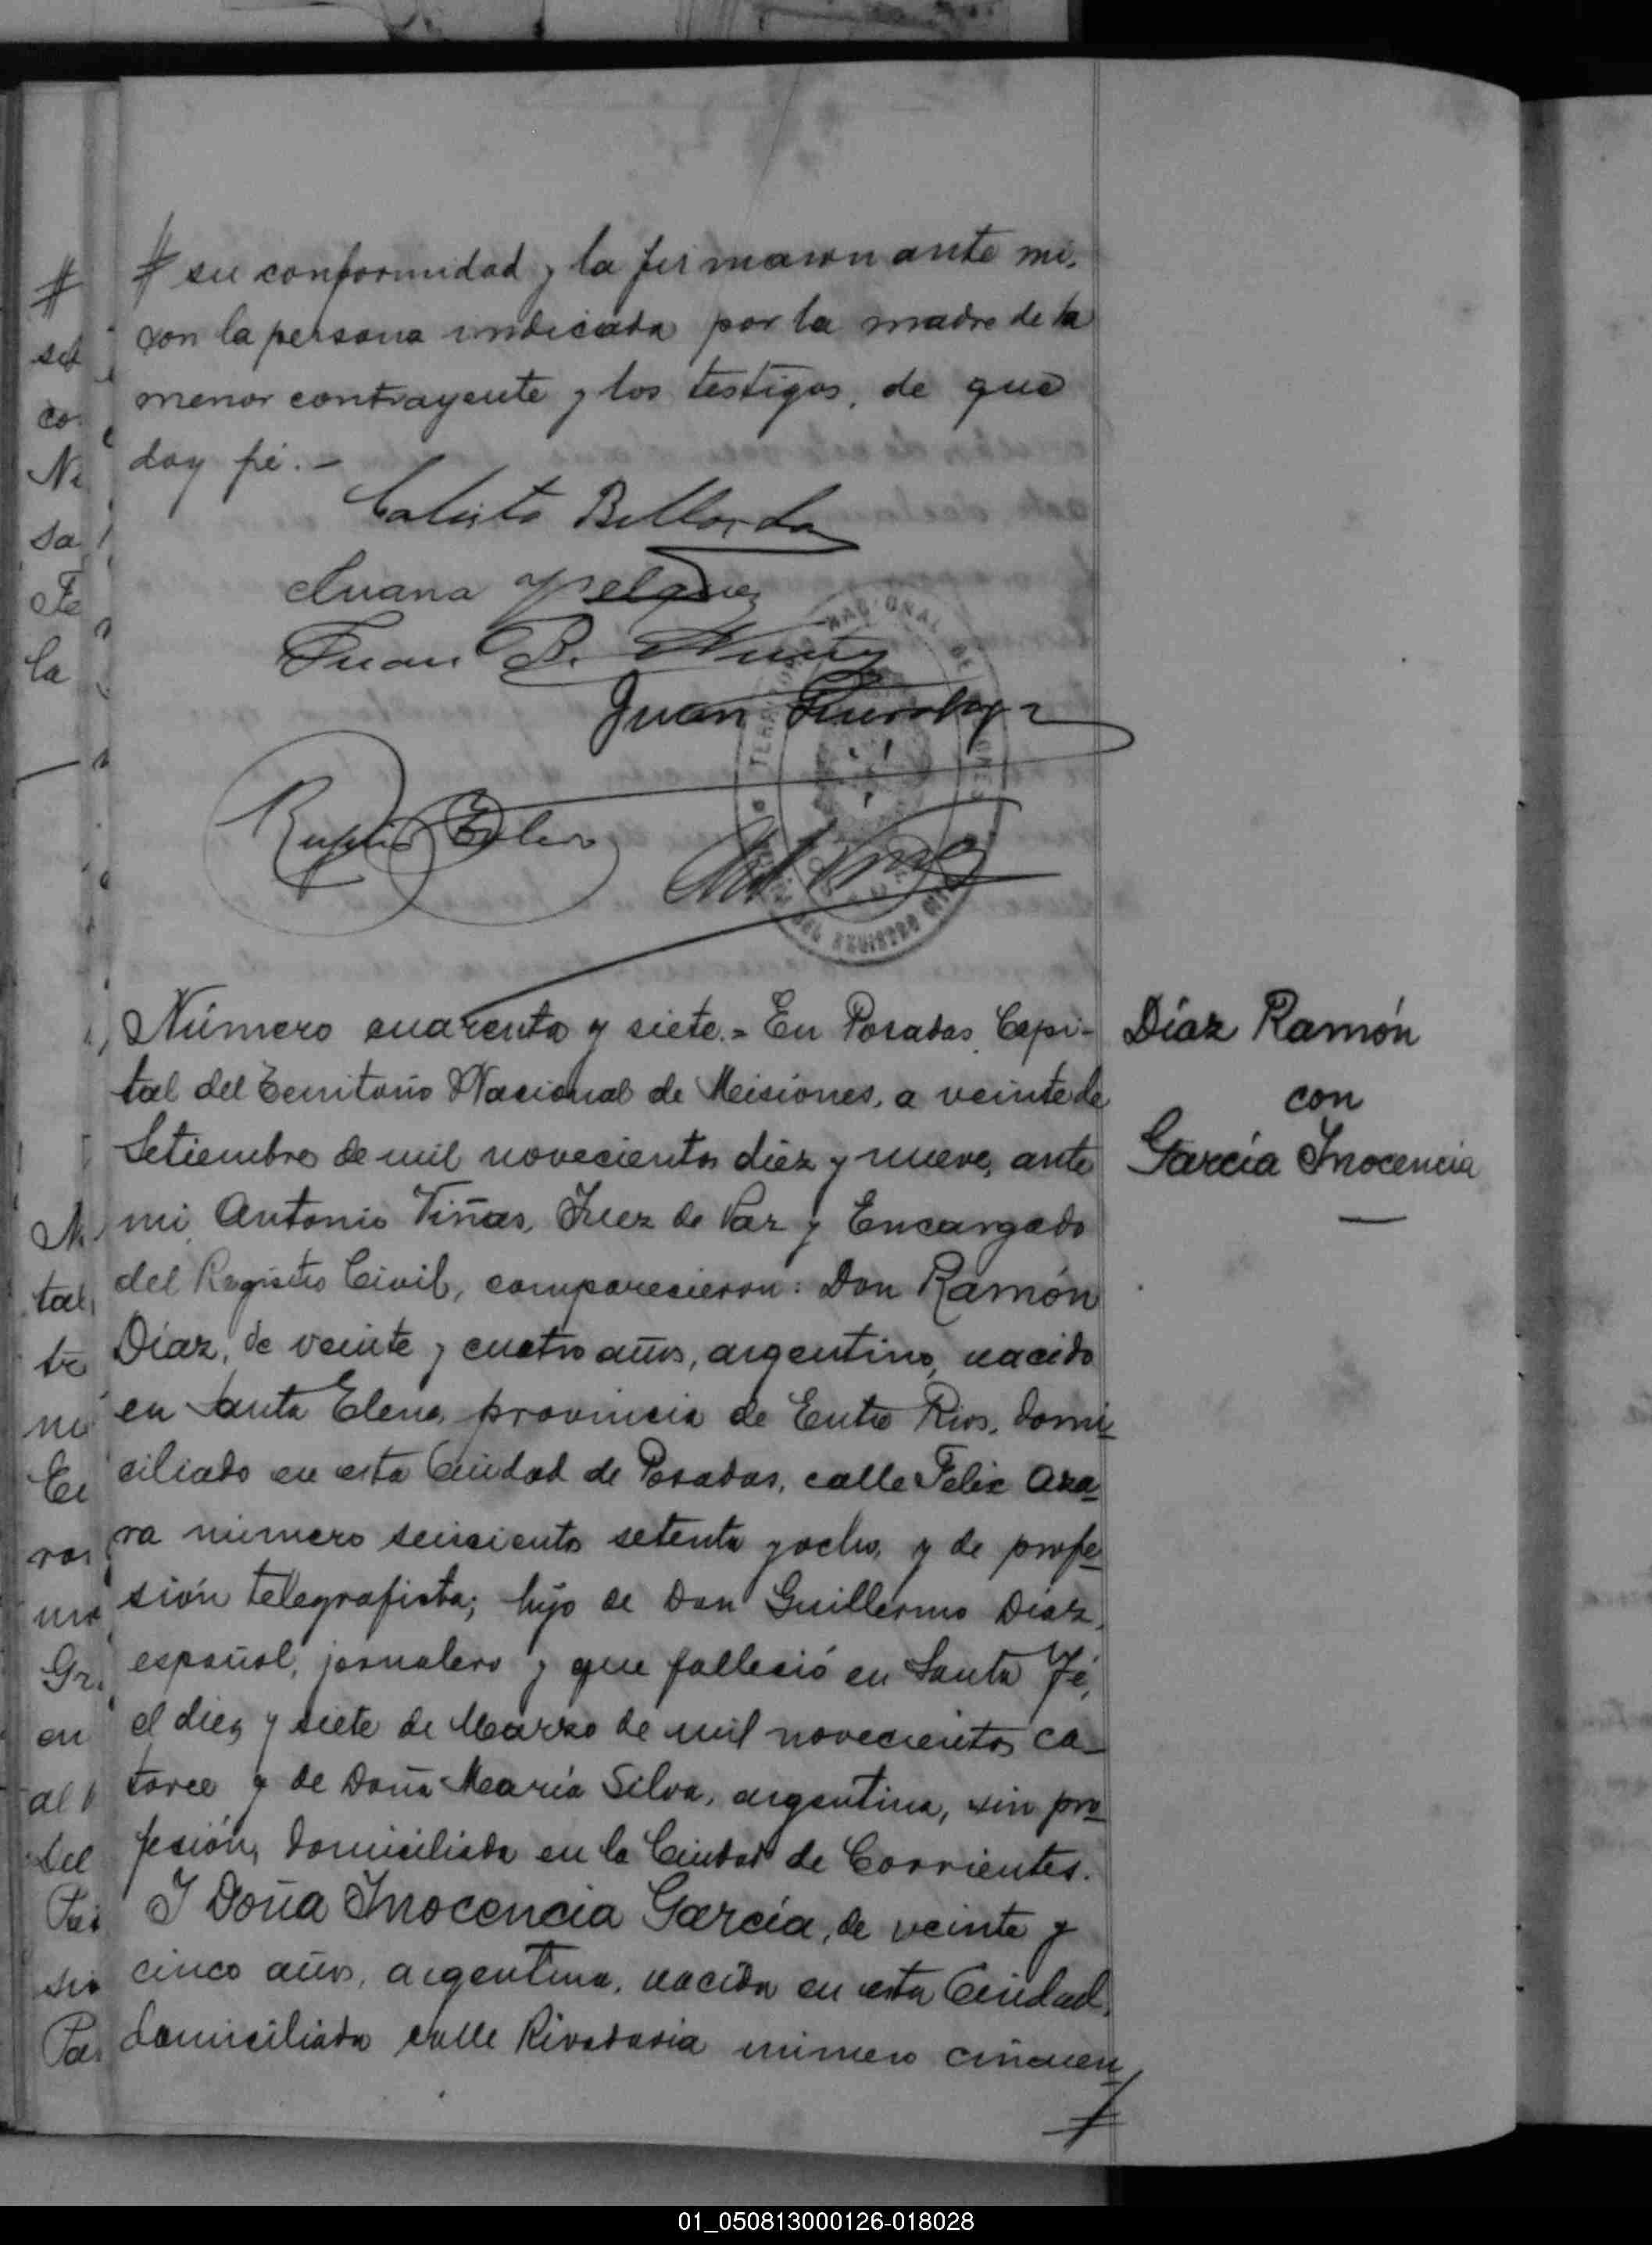 # su conformidad y la firmaron ante mi,
con la persona indicada por la madre de la
menor contrayente y los testigos, de que
doy fé.-
Calisto
Juana
Juan B.
Juan
TERRITORIO NACIONAL DE MISIONES
DEL REGISTRO CIVIL
Díaz Ramón
con
García Inocencia
Número cuarenta y siete.= En Posadas, Capi-
tal del Territorio Nacional de Misiones, a veinte de
Setiembre de mil novecientos diez y nueve, ante
mi, Antonio Viñas, Juez de Paz y Encargado
del Registro Civil, comparecieron: Don Ramón
Díaz, de veinte y cuatro años, argentino, nacido
en Santa Elena, provincia de Entre Rios, domi-
ciliado en esta Ciudad de Posadas, calle Felix Aza-
ra número seiscientos setenta y ocho, y de profe-
sión telegrafista; hijo de Don Guillermo Díaz,
español, jornalero y que falleció en Santa Fé,
el diez y siete de Marzo de mil novecientos ca-
torce y de Doña María Silva, argentina, sin pro-
fesión, domiciliada en la Ciudad de Corrientes.
Y Doña Inocencia García, de veinte y
cinco años, argentina, nacida en esta Ciudad,
domiciliada calle Rivadavia número cincuen-
#
01_050813000126-018028